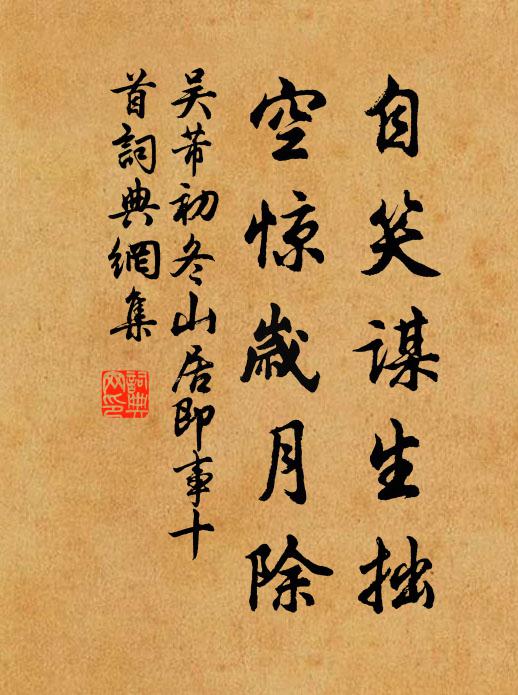 自笑谋生拙
空惊歲月除
吴芾初冬山居即事十
首詞典網集
詞典
网印